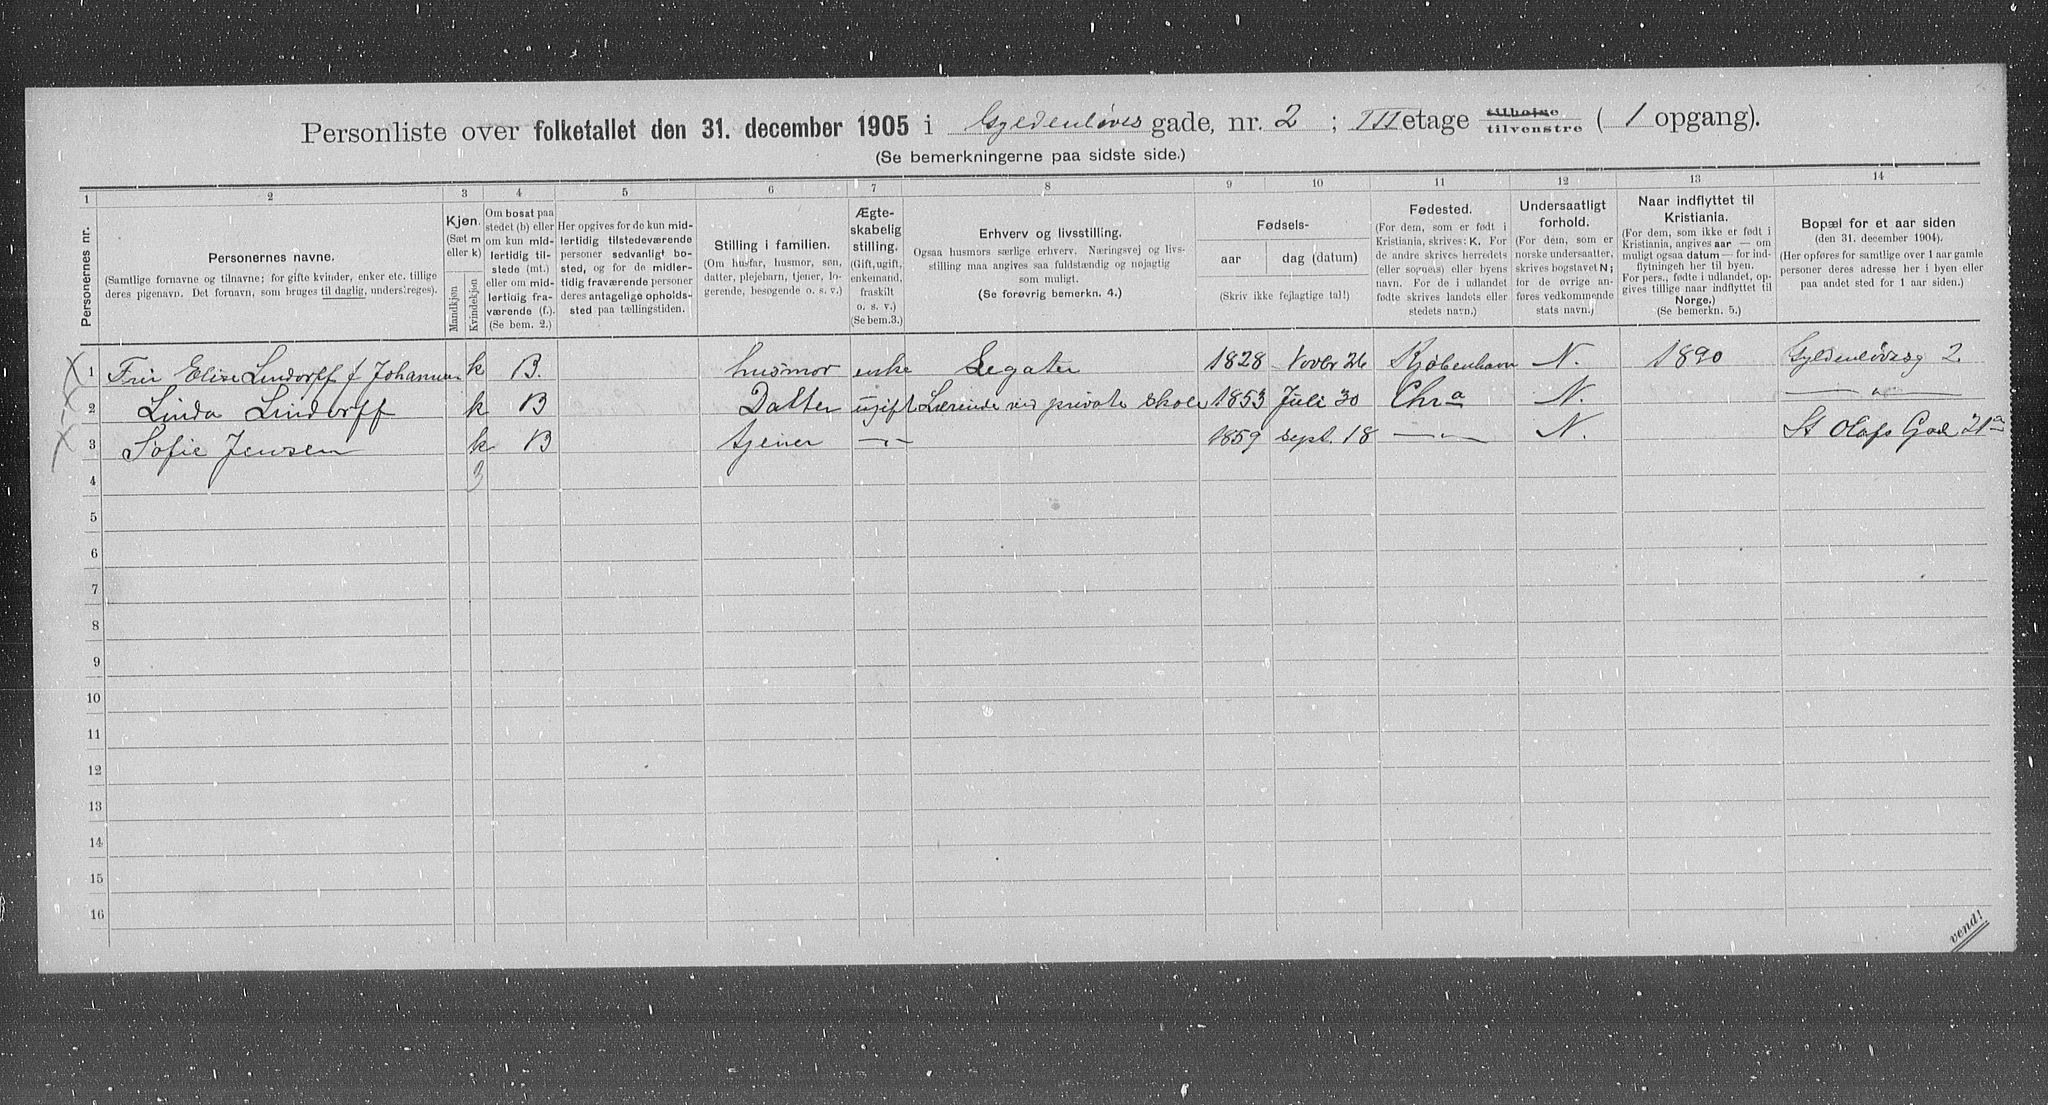 Personliste over folketallet den 31. december 1905 i Gyldenløves gade, nr. 2 ; III etage tilhøire tilvenstre ( 1 opgang).
(Se bemerkningerne paa sidste side.)
1 2 3 4 5 6 7 8 9 10 11 12 13 14
Personernes nr.
Personernes navne.
(Samtlige fornavne og tilnavne; for gifte kvinder, enker etc. tillige
deres pigenavn. Det fornavn, som bruges til daglig, understreges).
Kjøn.
(Sæt m
eller k)
Mandkjøn
Kvindekjøn
Om bosat paa
stedet (b) eller
om kun mid-
lertidig til-
stede (mt.)
eller om mid-
lertidig fra-
værende (f.).
(Se bem. 2.)
Her opgives for de kun mid-
lertidig tilstedeværende
personer sedvanligt bo-
sted, og for de midler-
tidig fraværende personer
deres antagelige opholds-
sted paa tællingstiden.
Stilling i familien.
(Om husfar, husmor, søn,
datter, plejebarn, tjener, lo-
gerende, besøgende o. s. v.)
Ægte-
skabelig
stilling.
(Gift, ugift,
enkemand,
fraskilt
o. s. v.)
(Se bem.3.)
Erhverv og livsstilling.
Ogsaa husmors særlige erhverv. Næringsvej og livs-
stilling maa angives saa fuldstændig og nøjagtig
som muligt.
(Se forøvrig bemerkn. 4.)
Fødsels-
aar dag (datum)
(Skriv ikke fejlagtige tal!)
Fødested.
(For dem, som er født i
Kristiania, skrives: K. For
de andre skrives herredets
(eller sognets) eller byens
navn. For de i udlandet
fødte skrives landets eller
stedets navn.)
Undersaatligt
forhold.
(For dem, som er
norske undersaatter,
skrives bogstavet N;
for de øvrige an-
føres vedkommende
stats navn.)
Naar indflyttet til
Kristiania.
(For dem, som ikke er født i
Kristiania, angives aar — om
muligt ogsaa datum — for ind-
flytningen her til byen.
For pers., fødte i udlandet, op-
gives tillige naar indflyttet til
Norge.)
(Se bemerkn. 5.)
Bopæl for et aar siden
(den 31. december 1904).
(Her opføres for samtlige over 1 aar gamle
personer deres adresse her i byen eller
paa andet sted for 1 aar siden.)
X 1 Fru Elise Lindorff f Johannsen k B. husmor enke Legater 1828 Novbr 26 Kjøbenhavn N. 1890 Gyldenløvesg 2.
X 2 Linda Lindorff k B Datter ugift Lærerinde ved private skole 1853 Juli 30 Chra N. — " —
X 3 Sofie Jensen k B tjener — " — 1859 sept. 18 — " — N. St Olafs Gad 21a
4 3
5
6
7
8
9
10
11
12
13
14
15
16
vend!